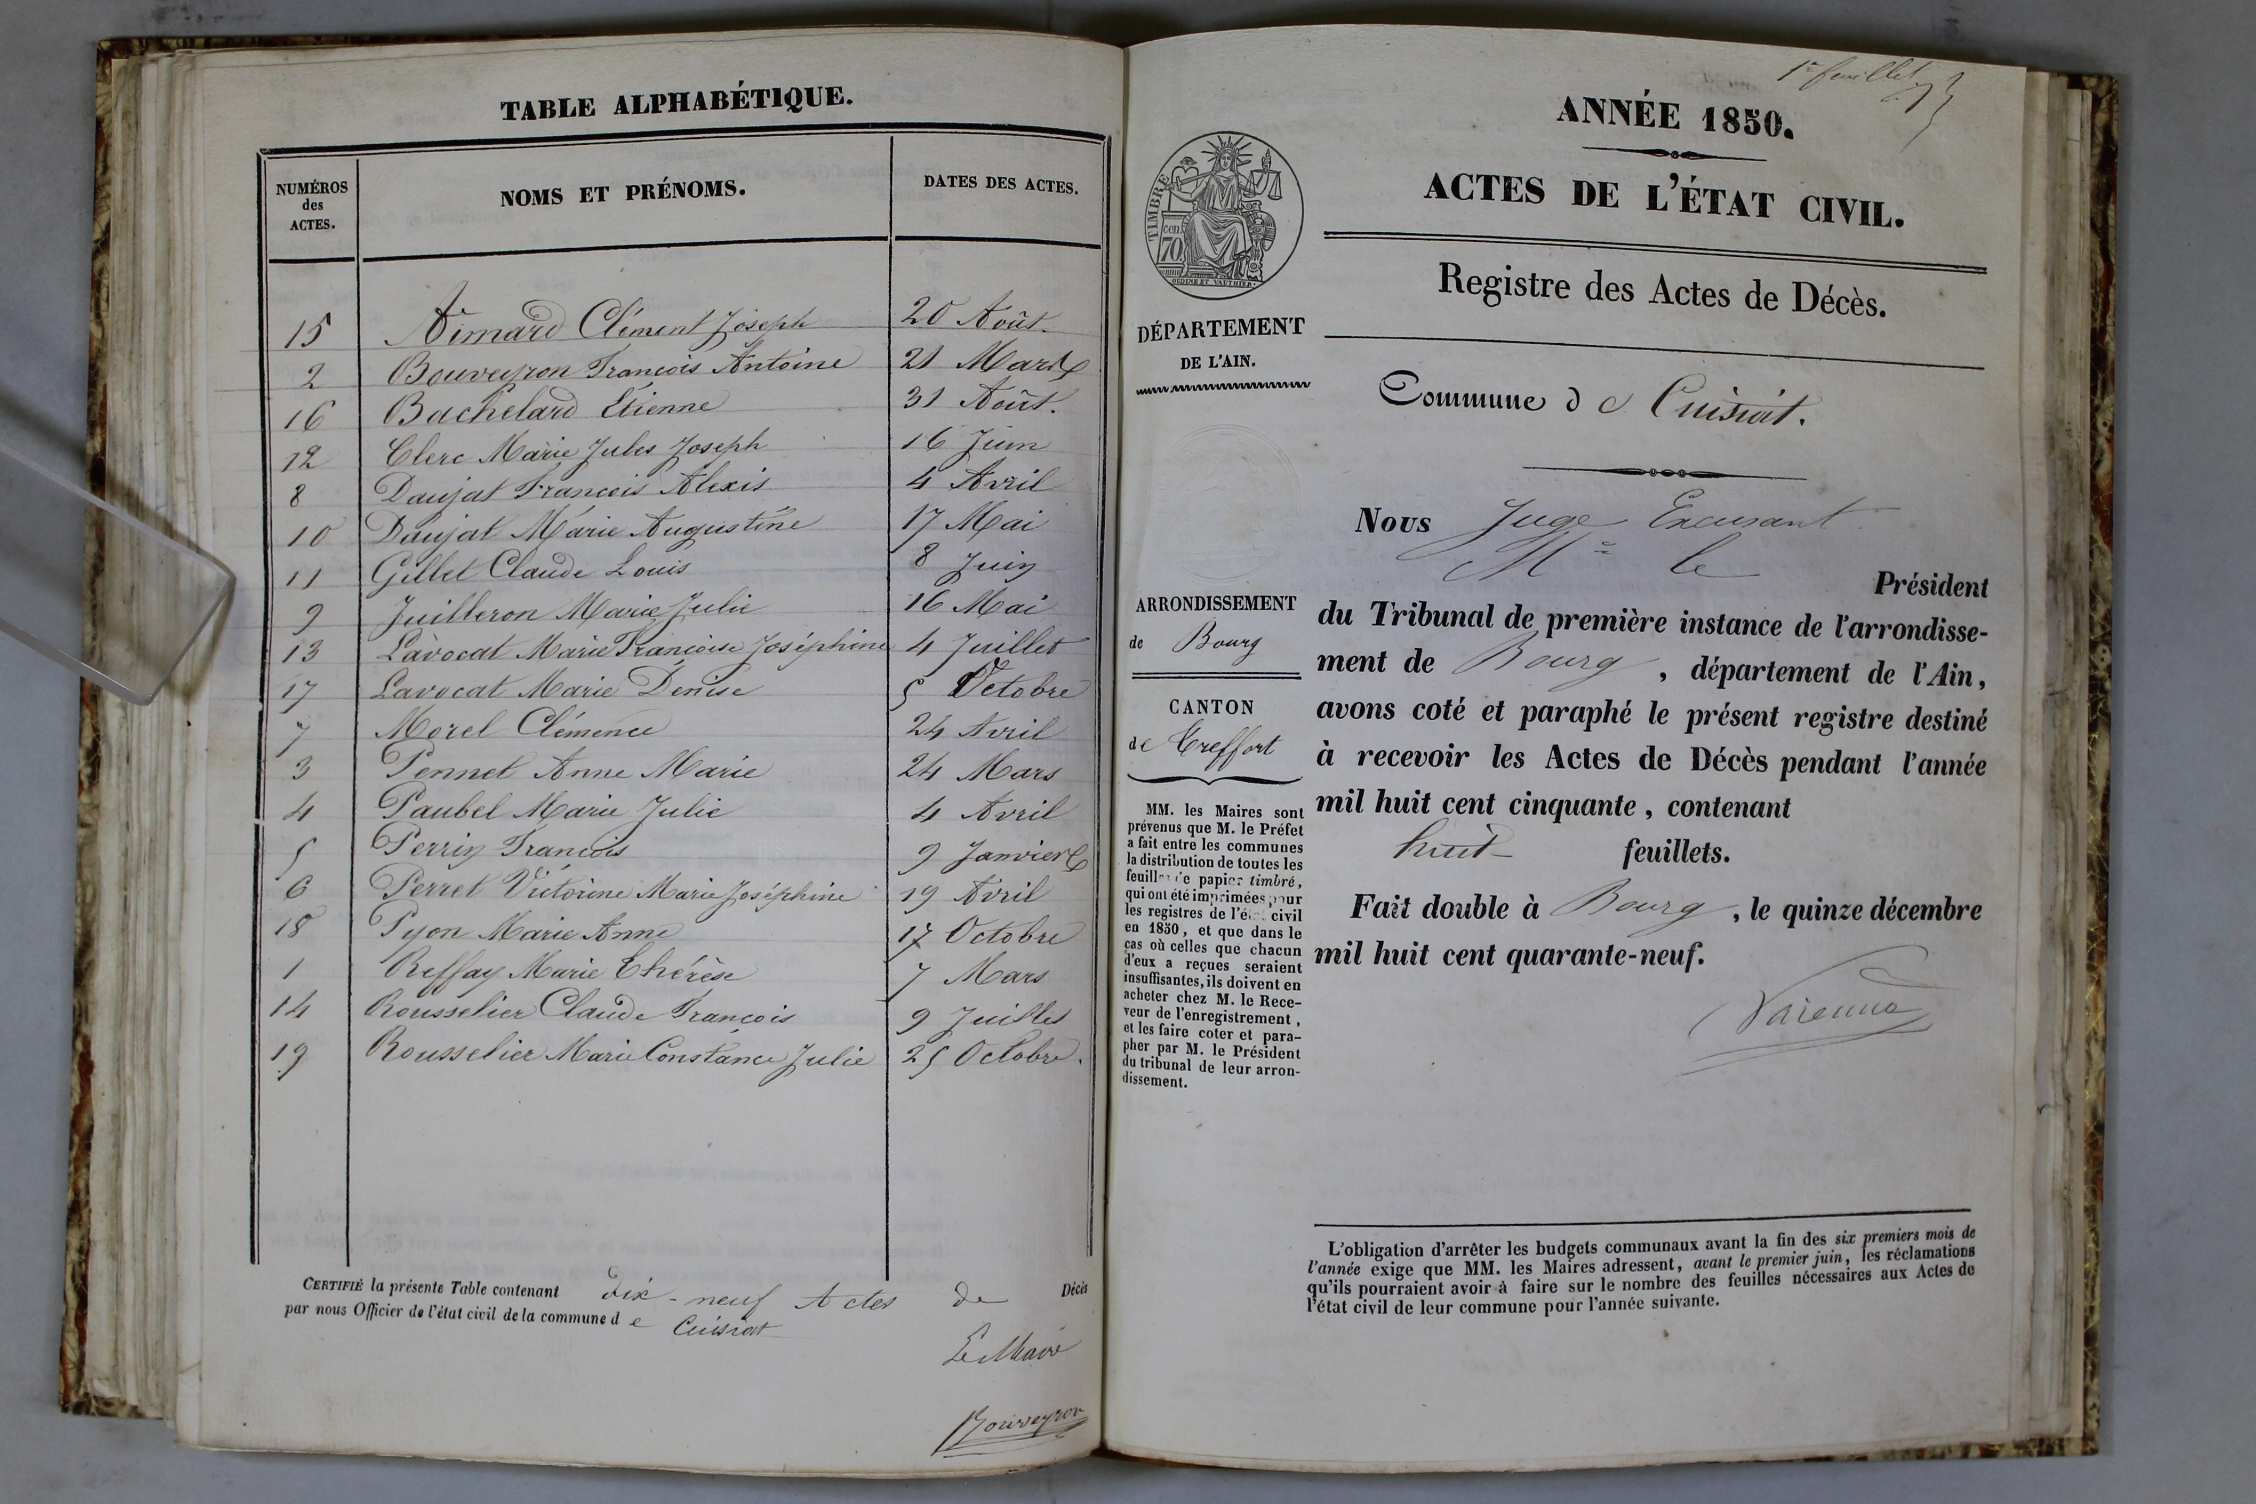 TABLE ALPHABÉTIQUE.
NUMÉROS des ACTES. NOMS ET PRÉNOMS. DATES DES ACTES.
15 Aimard Clément Joseph 20 Août.
2 Bouveyron François Antoine 21 Mars
16 Bachelard Etienne 31 Août.
12 Clerc Marie Jules Joseph 16 Juin
8 Daujat François Alexis 4 Avril
10 Daujat Marie Augustine 17 Mai
11 Gillet Claude Louis 8 Juin
9 Juilleron Marie Julie 16 Mai
13 Lavocat Marie Françoise Joséphine 4 Juillet
17 Lavocat Marie Denise 5 Octobre
7 Morel Clémence 24 Avril
3 Pennet Anne Marie 24 Mars
4 Paubel Marie Julie 4 Avril
5 Perrin François 9 Janvier
6 Perret Victorine Marie Joséphine 19 Avril
18 Pyon Marie Anne 17 Octobre
1 Reffay Marie Thérèse 7 Mars
14 Rousselier Claude François 9 Juillet
19 Rousselier Marie Constance Julie 25 Octobre.
CERTIFIÉ la présente Table contenant dix-neuf Actes de Décès
par nous Officier de l'état civil de la commune de Cuisiat
Le Maire
Bouveyron
1er feuillet
ANNÉE 1850.
ACTES DE L'ÉTAT CIVIL.
Registre des Actes de Décès.
TIMBRE
70 cen.
DÉPARTEMENT
DE L'AIN.
Commune de Cuisiat.
ARRONDISSEMENT
de Bourg
CANTON
de Treffort
MM. les Maires sont
prévenus que M. le Préfet
a fait entre les communes
la distribution de toutes les
feuilles de papier timbré,
qui ont été imprimées pour
les registres de l'état civil
en 1850, et que dans le
cas où celles que chacun
d'eux a reçues seraient
insuffisantes, ils doivent en
acheter chez M. le Rece-
veur de l'enregistrement,
et les faire coter et para-
pher par M. le Président
du tribunal de leur arron-
dissement.
Nous Juge
Mr le
Président
du Tribunal de première instance de l'arrondisse-
ment de Bourg, département de l'Ain,
avons coté et paraphé le présent registre destiné
à recevoir les Actes de Décès pendant l'année
mil huit cent cinquante, contenant
huit feuillets.
Fait double à Bourg, le quinze décembre
mil huit cent quarante-neuf.
L'obligation d'arrêter les budgets communaux avant la fin des six premiers mois de
l'année exige que MM. les Maires adressent, avant le premier juin, les réclamations
qu'ils pourraient avoir à faire sur le nombre des feuilles nécessaires aux Actes de
l'état civil de leur commune pour l'année suivante.